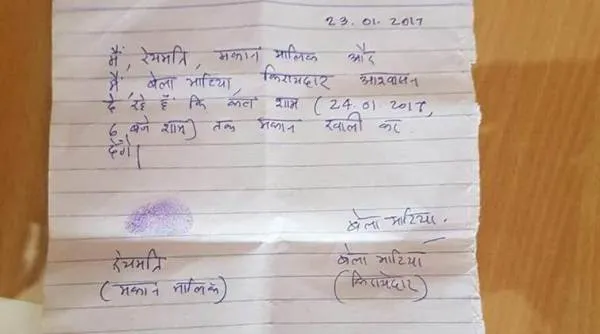 23.01.2017
मैं, रेयमति, मकान मालिक और
मैं, बेला भाटिया, किरायेदार आश्वासन
दे रहे हैं कि कल शाम (24.01.2017,
6 बजे शाम) तक मकान खाली कर
देंगे।
बेला भाटिया.
रेयमति
बेला भाटिया
(मकान मालिक)
(किरायेदार)